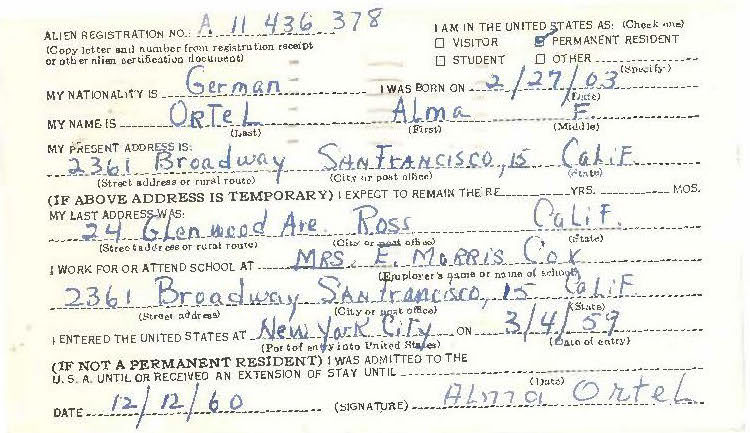 ALIEN REGISTRATION NO.: A 11 436 378
(Copy letter and number from registration receipt or other alien certification document)
I AM IN THE UNITED STATES AS: (Check one)
☐ VISITOR ☑ PERMANENT RESIDENT
☐ STUDENT ☐ OTHER
(Specify)
MY NATIONALITY IS German I WAS BORN ON 2/27/03
(Date)
MY NAME IS ORTEL Alma F.
(Last) (First) (Middle)
MY PRESENT ADDRESS IS:
2361 Broadway SAN FRANCISCO, 15 CaliF.
(Street address or rural route) (City or post office) (State)
(IF ABOVE ADDRESS IS TEMPORARY) I EXPECT TO REMAIN THE RE YRS. MOS.
MY LAST ADDRESS WAS:
24 Glenwood Are. Ross CaliF.
(Street address or rural route) (City or post office) (State)
I WORK FOR OR ATTEND SCHOOL AT MRS. E. MORRIS Cox
(Employer's name or name of school)
2361 Broadway SAN Francisco, 15 CaliF.
(Street address) (City or post office) (State)
I ENTERED THE UNITED STATES AT New York City ON 3/4/59
(Port of entry into United States) (Date of entry)
(IF NOT A PERMANENT RESIDENT) I WAS ADMITTED TO THE
U. S. A. UNTIL OR RECEIVED AN EXTENSION OF STAY UNTIL
(Date)
DATE 12/12/60 (SIGNATURE) Alma Ortel